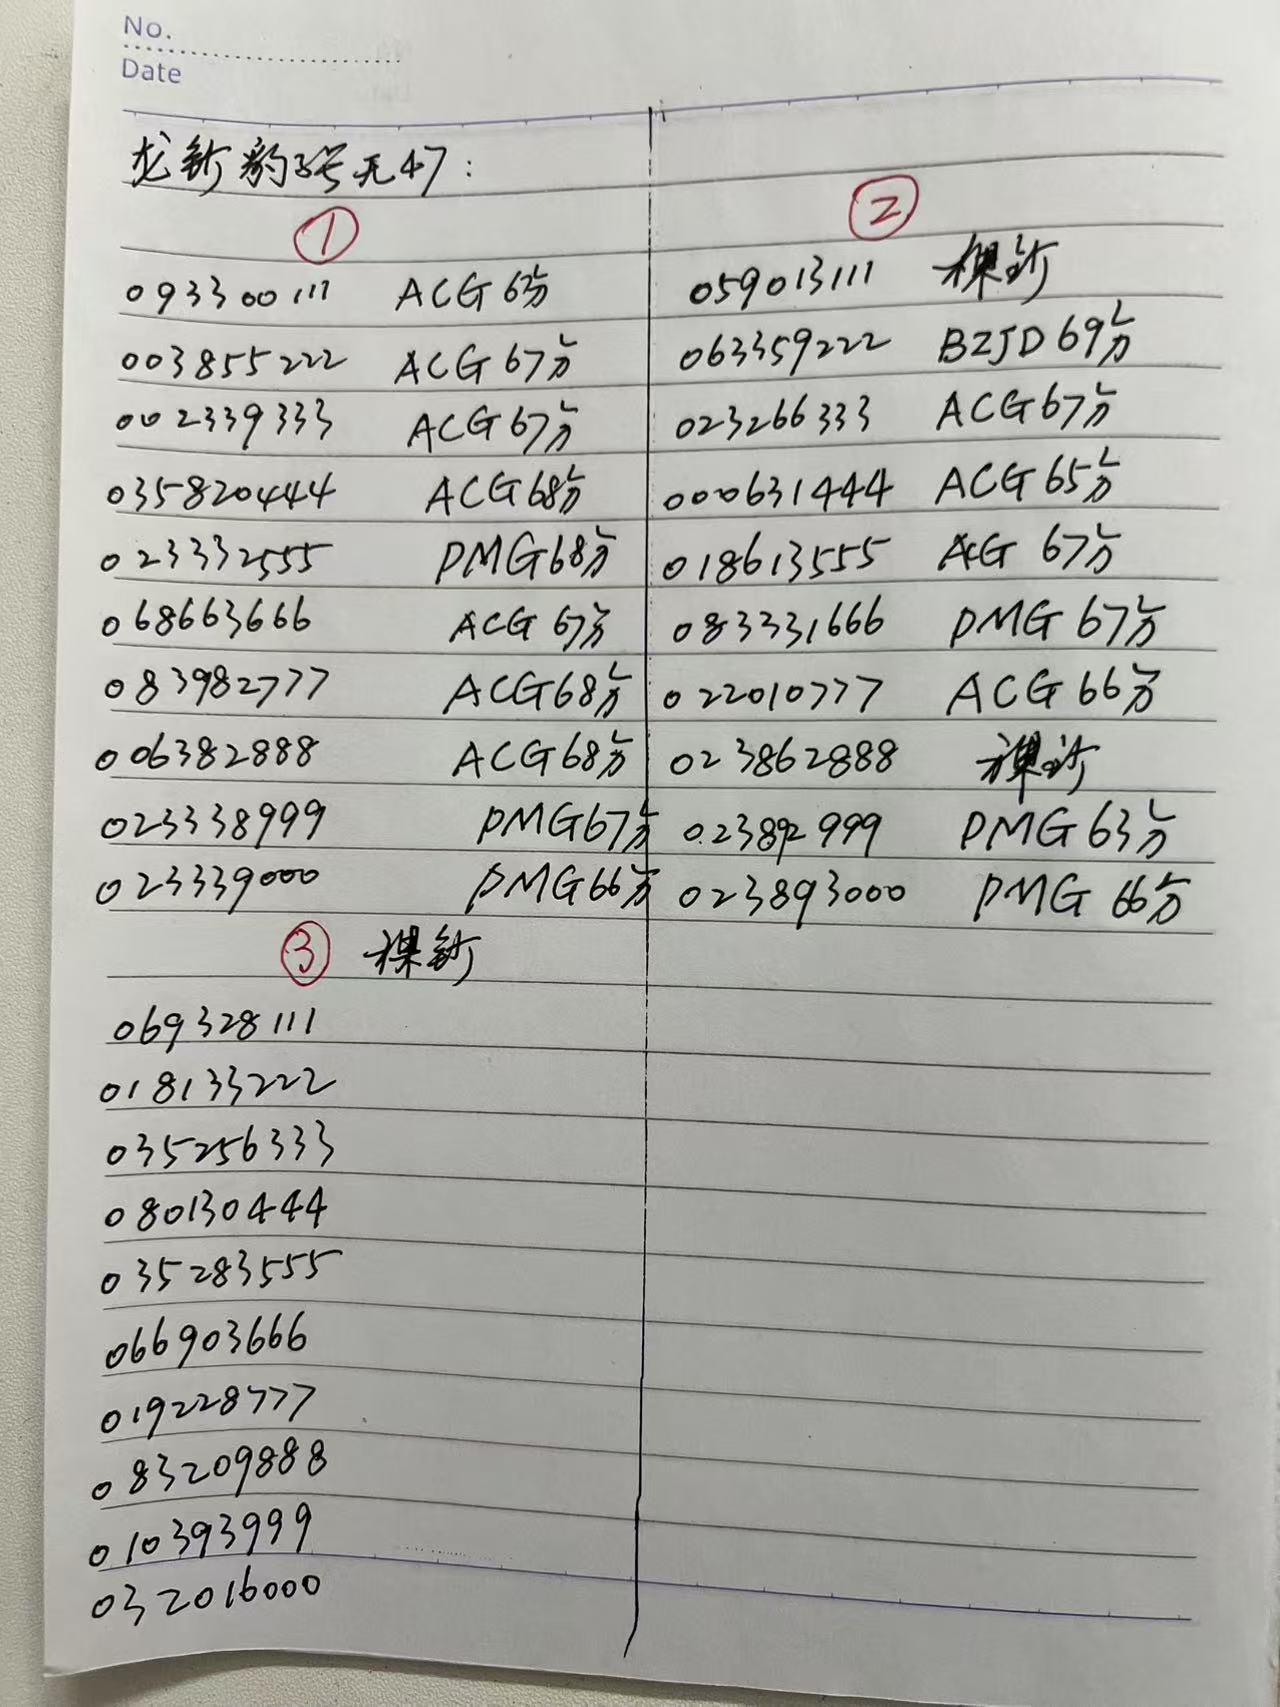 No.
Date
龙钞豹子号无47:
①
093300111 ACG 65分
003855222 ACG 67分
002339333 ACG 67分
035820444 ACG 68分
023332555 PMG 68分
068663666 ACG 67分
083982777 ACG 68分
006382888 ACG 68分
023338999 PMG 67分
023339000 PMG 66分
②
059013111 裸钞
063359222 BZJD 69分
023266333 ACG 67分
000631444 ACG 65分
018613555 ACG 67分
083331666 PMG 67分
022010777 ACG 66分
023862888 裸钞
023892999 PMG 63分
023893000 PMG 66分
③ 裸钞
069328111
018133222
035256333
080130444
035283555
066903666
019228777
083209888
010393999
032016000